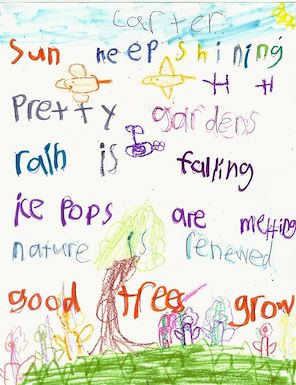 carter
Sun keep shining
Pretty gardens
rain is falling
ice pops are melting
nature is renewed
good trees grow